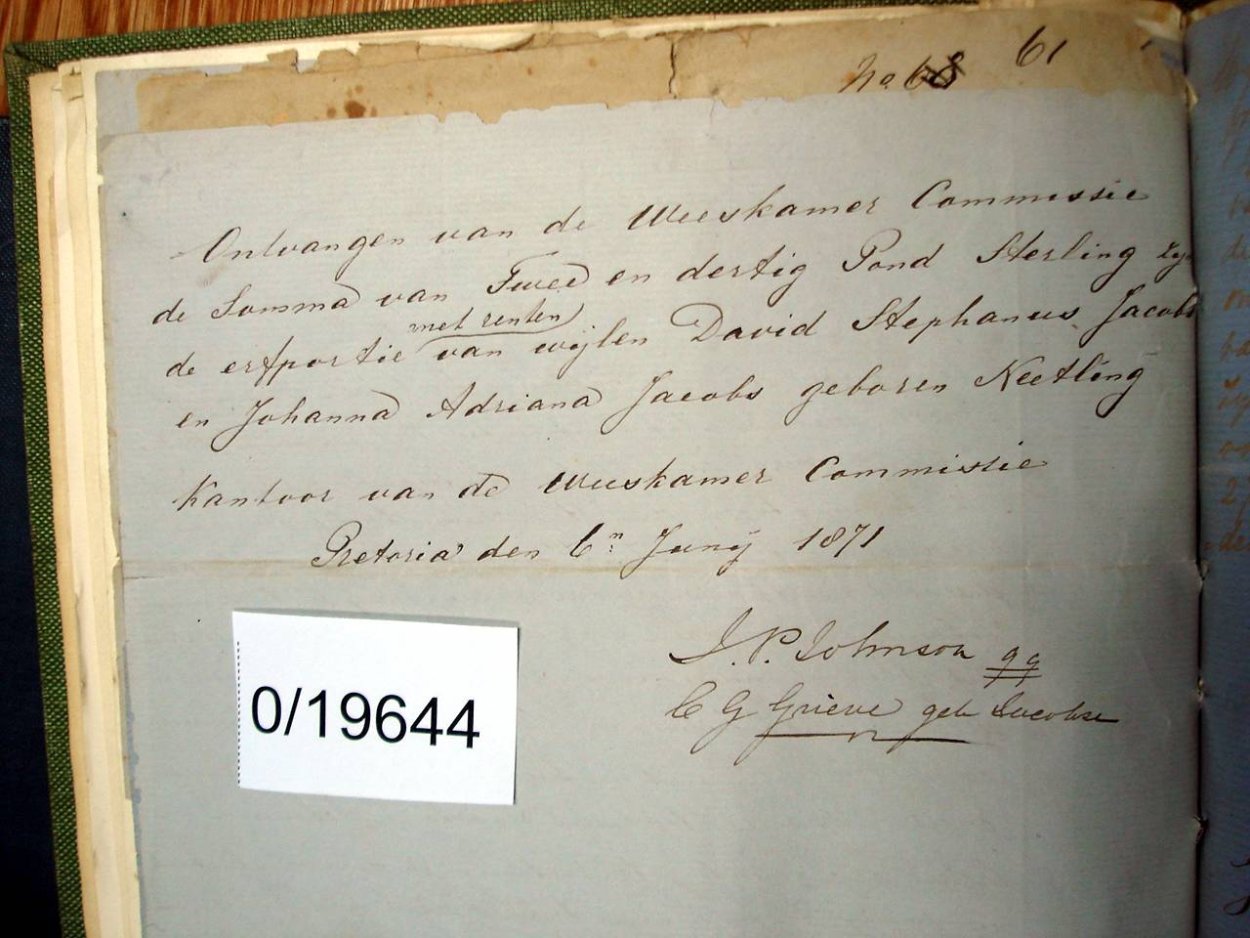 No 68 61
Ontvangen van de Weeskamer Commissie
de Somma van Twee en dertig Pond Sterling zyn
met renten
de erfportie van wijlen David Stephanus Jacobs
en Johanna Adriana Jacobs geboren Neetling
Kantoor van de Weeskamer Commissie
Pretoria den 6n Junij 1871
J. P. Johnson qq
C G Grieve geb Jacobse
0/19644